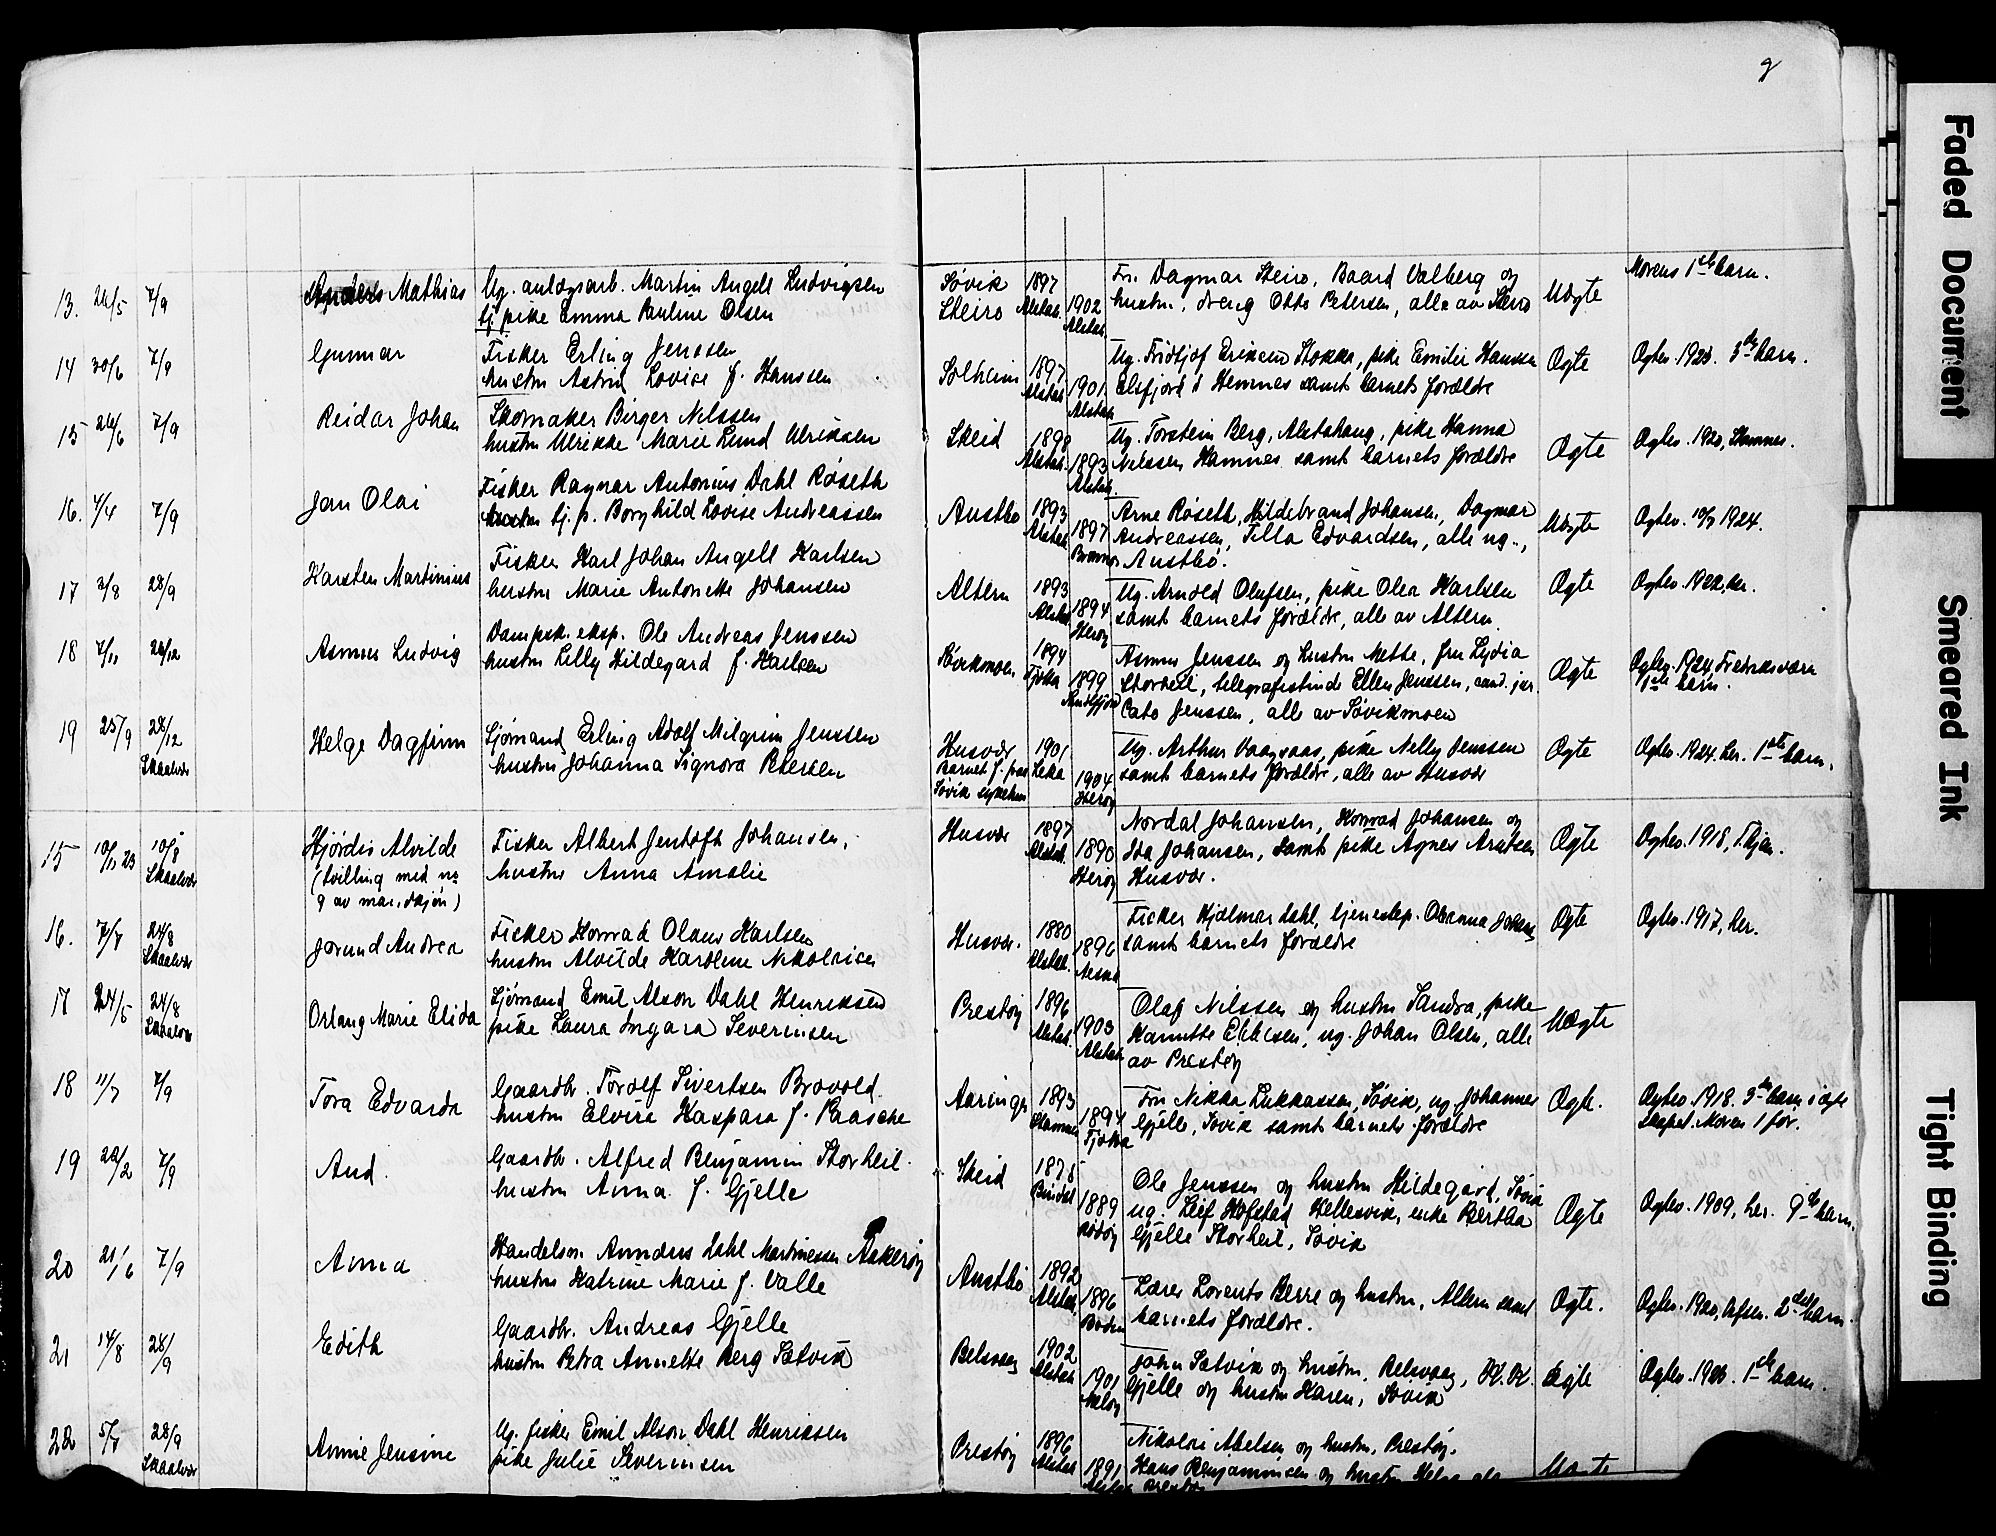 9
13. 24/5 7/9 Anders Mathias Ug. anlægsarb. Martin Angell Ludvigsen
tj. pike Emma Pauline Olsen
Søvik
Steiro
1897
Alstah.
1902
Alstah.
Fru Dagmar Steiro, Baard Valberg og
hustru, dreng Otto Petersen, alle av Steiro
Uægte
Morens 1ste barn.
14 30/6 7/9 Gunnar Fisker Erling Jenssen
hustru Astrid Lovise f. Hanssen
Solheim
1897
Alstah.
1901
Alstah.
Ug. Fridtjof Eriksen Stokka, pike Emilie Hanssen
Elsfjord i Hemnes samt barnets forældre
Ægte
Ægtev. 1920. 3die barn.
15 26/6 7/9 Reidar Johan Skomaker Birger Nilssen
hustru Ulrikke Marie Lund Ulriksen
Skeid
1898
Alstah.
1893
Alstah.
Ug. Torstein Berg, Alstahaug, pike Hanna
Nilssen Hamnes samt barnets forældre
Ægte
Ægtev. 1920, Stamnes.
16. 4/4 7/9 Jan Olai Fisker Ragnar Antonius Dahl Røseth
tj. p. Borghild Lovise Andreassen
Austbø
1893
Alstah.
1897
Arne Røseth, Hildebrand Johansen, Dagmar
Andreassen, Tilla Edvardsen, alle ug.,
Austbø.
Uægte
Ægtev. 10/7 1924.
17 3/8 28/9 Karsten Martinius Fisker Karl Johan Angell Karlsen
hustru Marie Antonette Johansen
Altern
1893
Alstah.
1894
Herøy
Ug. Arnold Olufsen, pike Olea Karlsen
samt barnets forældre, alle av Altern.
Ægte
Ægtev. 1922, her.
18 7/11 26/12 Asmus Ludvig Dampsk. eksp. Ole Andreas Jenssen
hustru Lilly Hildegard f. Karlsen
Søvikmoen
1894
Tjøtta
1899
Asmus Jenssen og hustru Mette, fru Lydia
Storheil, telegrafistinde Ellen Jenssen, cand. jur.
Cato Jenssen, alle av Søvikmoen
Ægte
Ægtev. 1924, Fredriksværn
1ste barn.
19 25/9 28/12
Skaalvær
Helge Dagfinn Sjømand Erling Adolf Milgrim Jenssen
hustru Johanna Signora Petersen
Husvær
Barnet f. paa
Søvik sykehus
1901
Leka
1904
Herøy
Ug. Arthur Vaagsaas, pike Nelly Jenssen
samt barnets forældre, alle av Husvær
Ægte
Ægtev. 1924. her. 1ste barn.
15 10/11 23 10/8
Skaalvær
Hjørdis Alvilde
(tvilling med no
9 av mandkjøn)
Fisker Albert Jentoft Johansen,
hustru Anna Amalie
Husvær
1897
Alstah.
1890
Herøy
Nordal Johansen, Konrad Johansen og
Ida Johansen, samt pike Agnes Arntsen
Husvær.
Ægte
Ægtev. 1918,
16. 7/7 24/8
Skaalvær
Jorund Andrea
Fisker Konrad Olaus Karlsen
hustru Alvilde Karoline Nikolaisen
Husvær.
1880
Alstah.
1896
Fisker Hjalmar Dahl, tjenestep. Oleanna Johans.
samt barnets forældre
Ægte
Ægtev. 1917, her.
17 24/5 24/8
Skaalvær
Orlaug Marie Elida
Sjømand Emil Alson Dahl Henriksen
pike Laura Ingara Severinsen
Prestøy
1896
Alstah.
1903
Alstah.
Olaf Nilssen og hustru Sandra, pike
Hannette Eliksen, ug. Johan Olsen, alle
av Prestøy
Uægte
18 11/7 7/9 Tora Edvarda Gaardbr. Torolf Sivertsen Brovold
hustru Elvira Kaspara f. Paasche
Aaringe
1893
Stamnes
1894
Tjøtta
Fru Nikka Lukkassen, Søvik, ug. Johannes
Gjelle, Søvik samt barnets forældre
Ægte.
Ægtev. 1918. 3die barn i ægte
skapet. Moren 1 før.
19 22/2 7/9 Aud. Gaardbr. Alfred Benjamin Storheil.
hustru Anna f. Gjelle
Skeid
1875
Bindal
1889
Rødøy
Ole Jenssen og hustru Hildegard, Søvik
ug. Leif Hofstad Hellesvik, enke Bertha
Gjelle Storheil, Søvik
Ægte
Ægtev. 1909, her. 9de barn.
20 21/6 7/9 Anna Handelsm. Annæus Dahl Martinussen Aakerøy
hustru Katrine Marie f. Valle
Austbø
1892
Alstah.
1896
Bodin
Lærer Lorents Berre og hustru, Altern samt
barnets forældre.
Ægte.
Ægtev. 1920, 2det barn.
21 14/8 28/9 Edith Gaardbr. Andreas Gjelle
hustru Petra Annette Berg Satvik
Belsvaag
1902
Alstah.
1901
Meløy
John Satvik og hustru, Belsvaag, K.K.
Gjelle og hustru Karen, Søvik
Ægte
Ægtev. 1923. 1ste barn.
22 5/7 28/9
Skaalvær
Annie Jensine
Ug. fisker Emil Alson Dahl Henriksen
pike Julie Severinsen
Prestøy
1896
Alstah.
1891
Nikolai Abelsen og hustru, Prestøy.
Hans Benjaminsen og hustru Helga
Prestøy
Uægte
Faded Document
Smeared Ink
Tight Binding